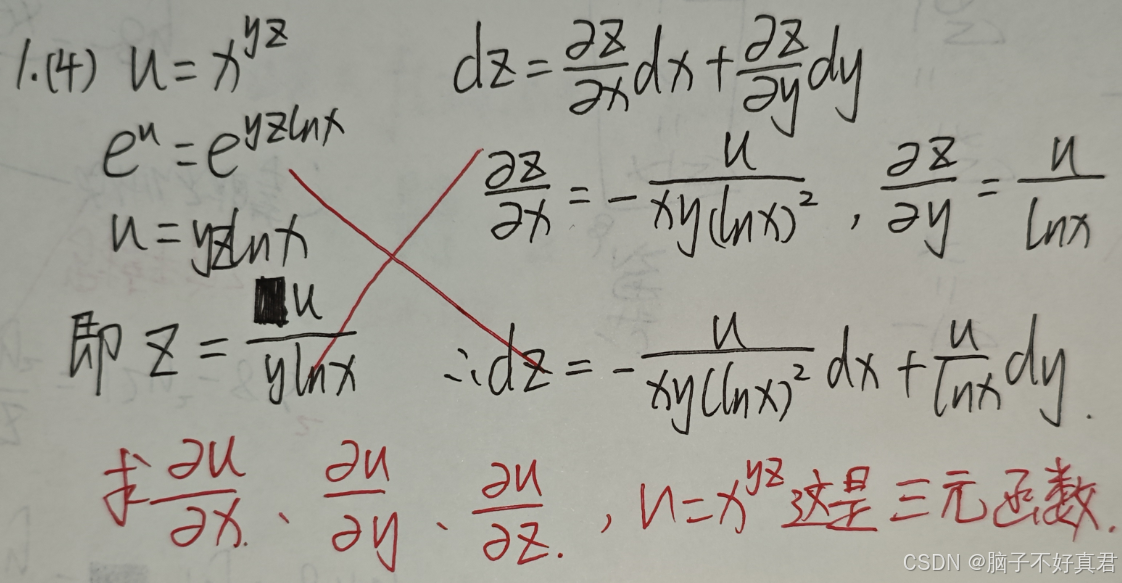 1.(4) u = x^{yz}
e^u = e^{yzlnx}
u = yzlnx
即 z = \frac{u}{ylnx}
dz = \frac{∂z}{∂x}dx + \frac{∂z}{∂y}dy
\frac{∂z}{∂x} = -\frac{u}{xy(lnx)^2} , \frac{∂z}{∂y} = \frac{u}{lnx}
∴ dz = -\frac{u}{xy(lnx)^2}dx + \frac{u}{lnx}dy.
求\frac{∂u}{∂x}、\frac{∂u}{∂y}、\frac{∂u}{∂z}. , u=x^{yz}这是三元函数.
CSDN @脑子不好真君